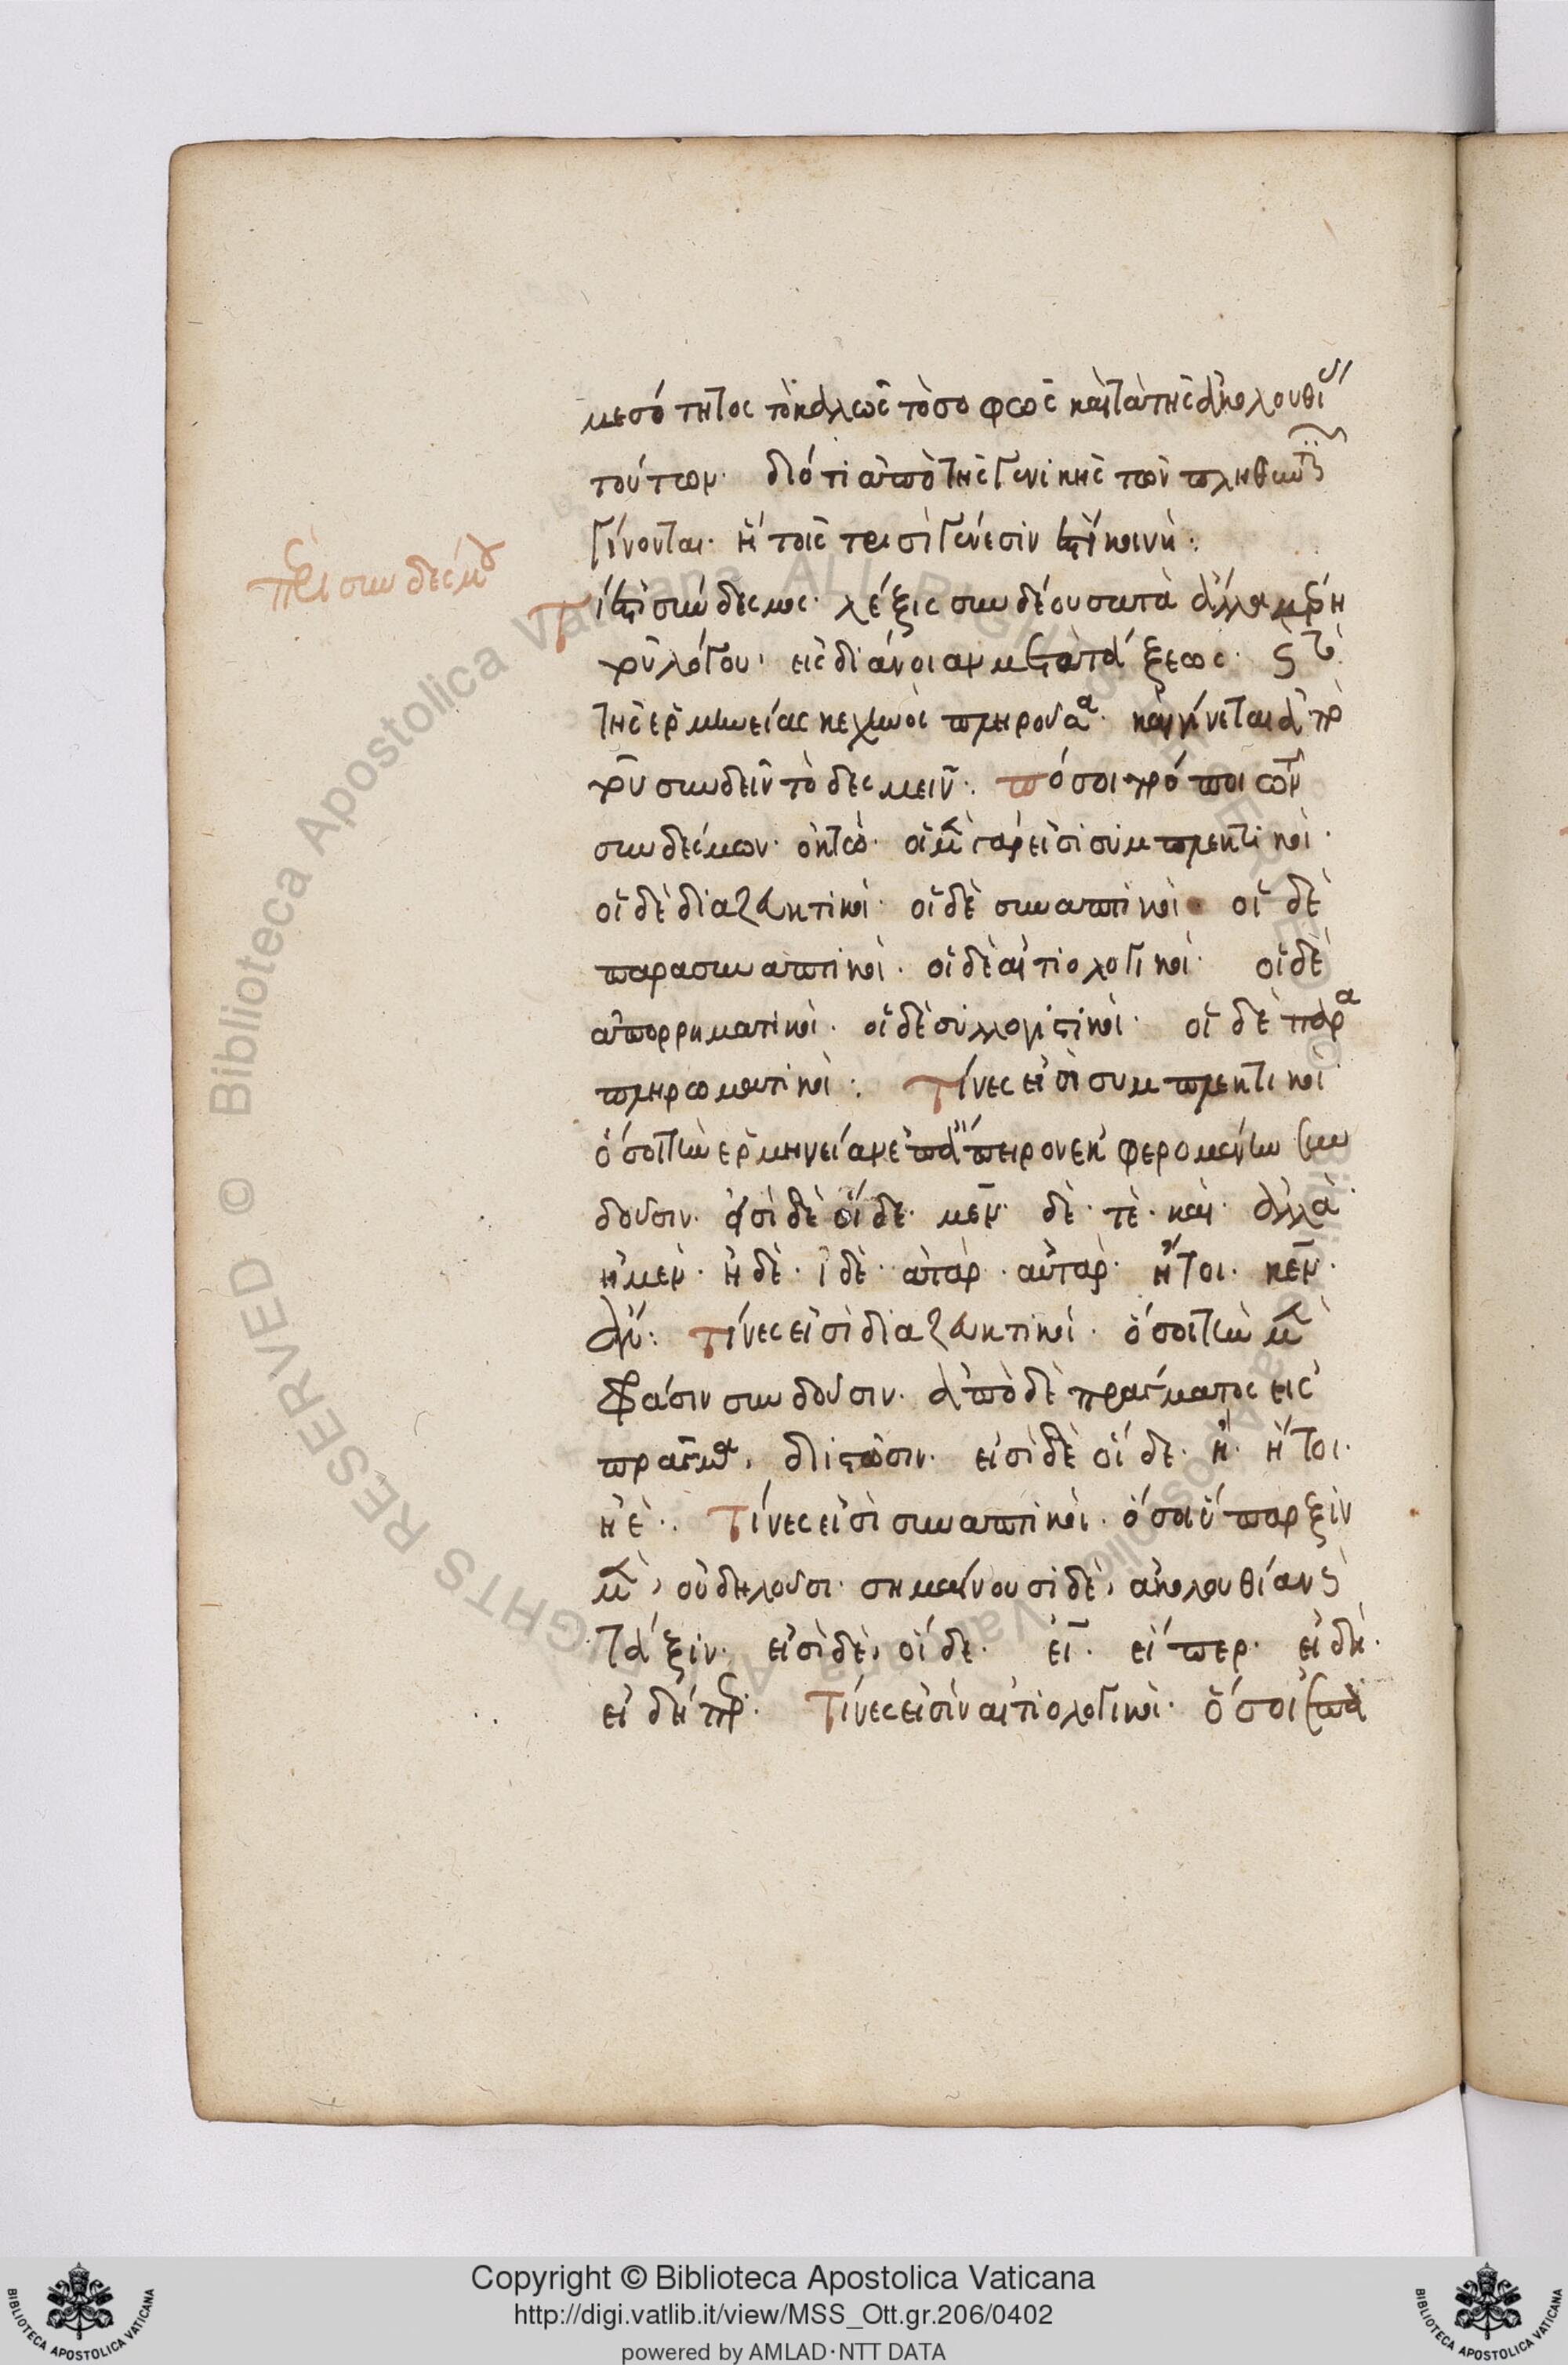 μεσότητος τὸ καλῶς τὸ σοφῶς καὶ τὰ τῆς ἀκολουθί
τούτων· διότι ἀπὸ τῆς γενικῆς τῶν πληθυντ
γίνονται· ἢ τοῖς τρισὶ γένεσίν ἐστι κοινή:
περὶ συνδέσμου
Τί ἐστι σύνδεσμος· λέξις συνδέουσα τὰ ἄλλα μέρη
τοῦ λόγου, εἰς διάνοιαν μετὰ τάξεως· καὶ τὸ
τῆς ἑρμηνείας κεχηνὸς πληροῦσα· καὶ γίνεται ἀπὸ
τοῦ συνδεῖν τὸ δεσμεῖν: πόσοι τρόποι τῶν
συνδέσμων· ὀκτώ· οἱ μὲν γάρ εἰσι συμπλεκτικοί·
οἱ δὲ διαζευκτικοί· οἱ δὲ συναπτικοί· οἱ δὲ
παρασυναπτικοί· οἱ δὲ αἰτιολογικοί· οἱ δὲ
ἀπορρηματικοί· οἱ δὲ συλλογιστικοί· οἱ δὲ παρα
πληρωματικοί: Τίνες εἰσὶ συμπλεκτικοί
ὅσοι τὴν ἑρμηνείαν ἐπ' ἄπειρον ἐκφερομένην συν
δοῦσιν· εἰσὶ δὲ οἵδε· μέν· δὲ· τὲ· καὶ· ἀλλὰ·
ἠμέν· ἠδὲ· ἰδὲ· ἀτάρ· αὐτάρ· ἤτοι· κέν·
ἄν: Τίνες εἰσὶ διαζευκτικοί· ὅσοι τὴν μὲν
φάσιν συνδοῦσιν· ἀπὸ δὲ πράγματος εἰς
πρᾶγμα, διιστῶσιν· εἰσὶ δὲ οἵδε· ἤ· ἤτοι·
ἠέ:· Τίνες εἰσὶ συναπτικοί· ὅσοι ὕπαρξιν
μὲν, οὐ δηλοῦσι· σημαίνουσι δὲ, ἀκολουθίαν καὶ
τάξιν· εἰσὶ δὲ, οἵδε· εἰ· εἴπερ· εἰ δή·
εἰ δήπερ: Τίνες εἰσὶν αἰτιολογικοί· ὅσοι ἐπὰ
Copyright © Biblioteca Apostolica Vaticana
http://digi.vatlib.it/view/MSS_Ott.gr.206/0402
powered by AMLAD·NTT DATA